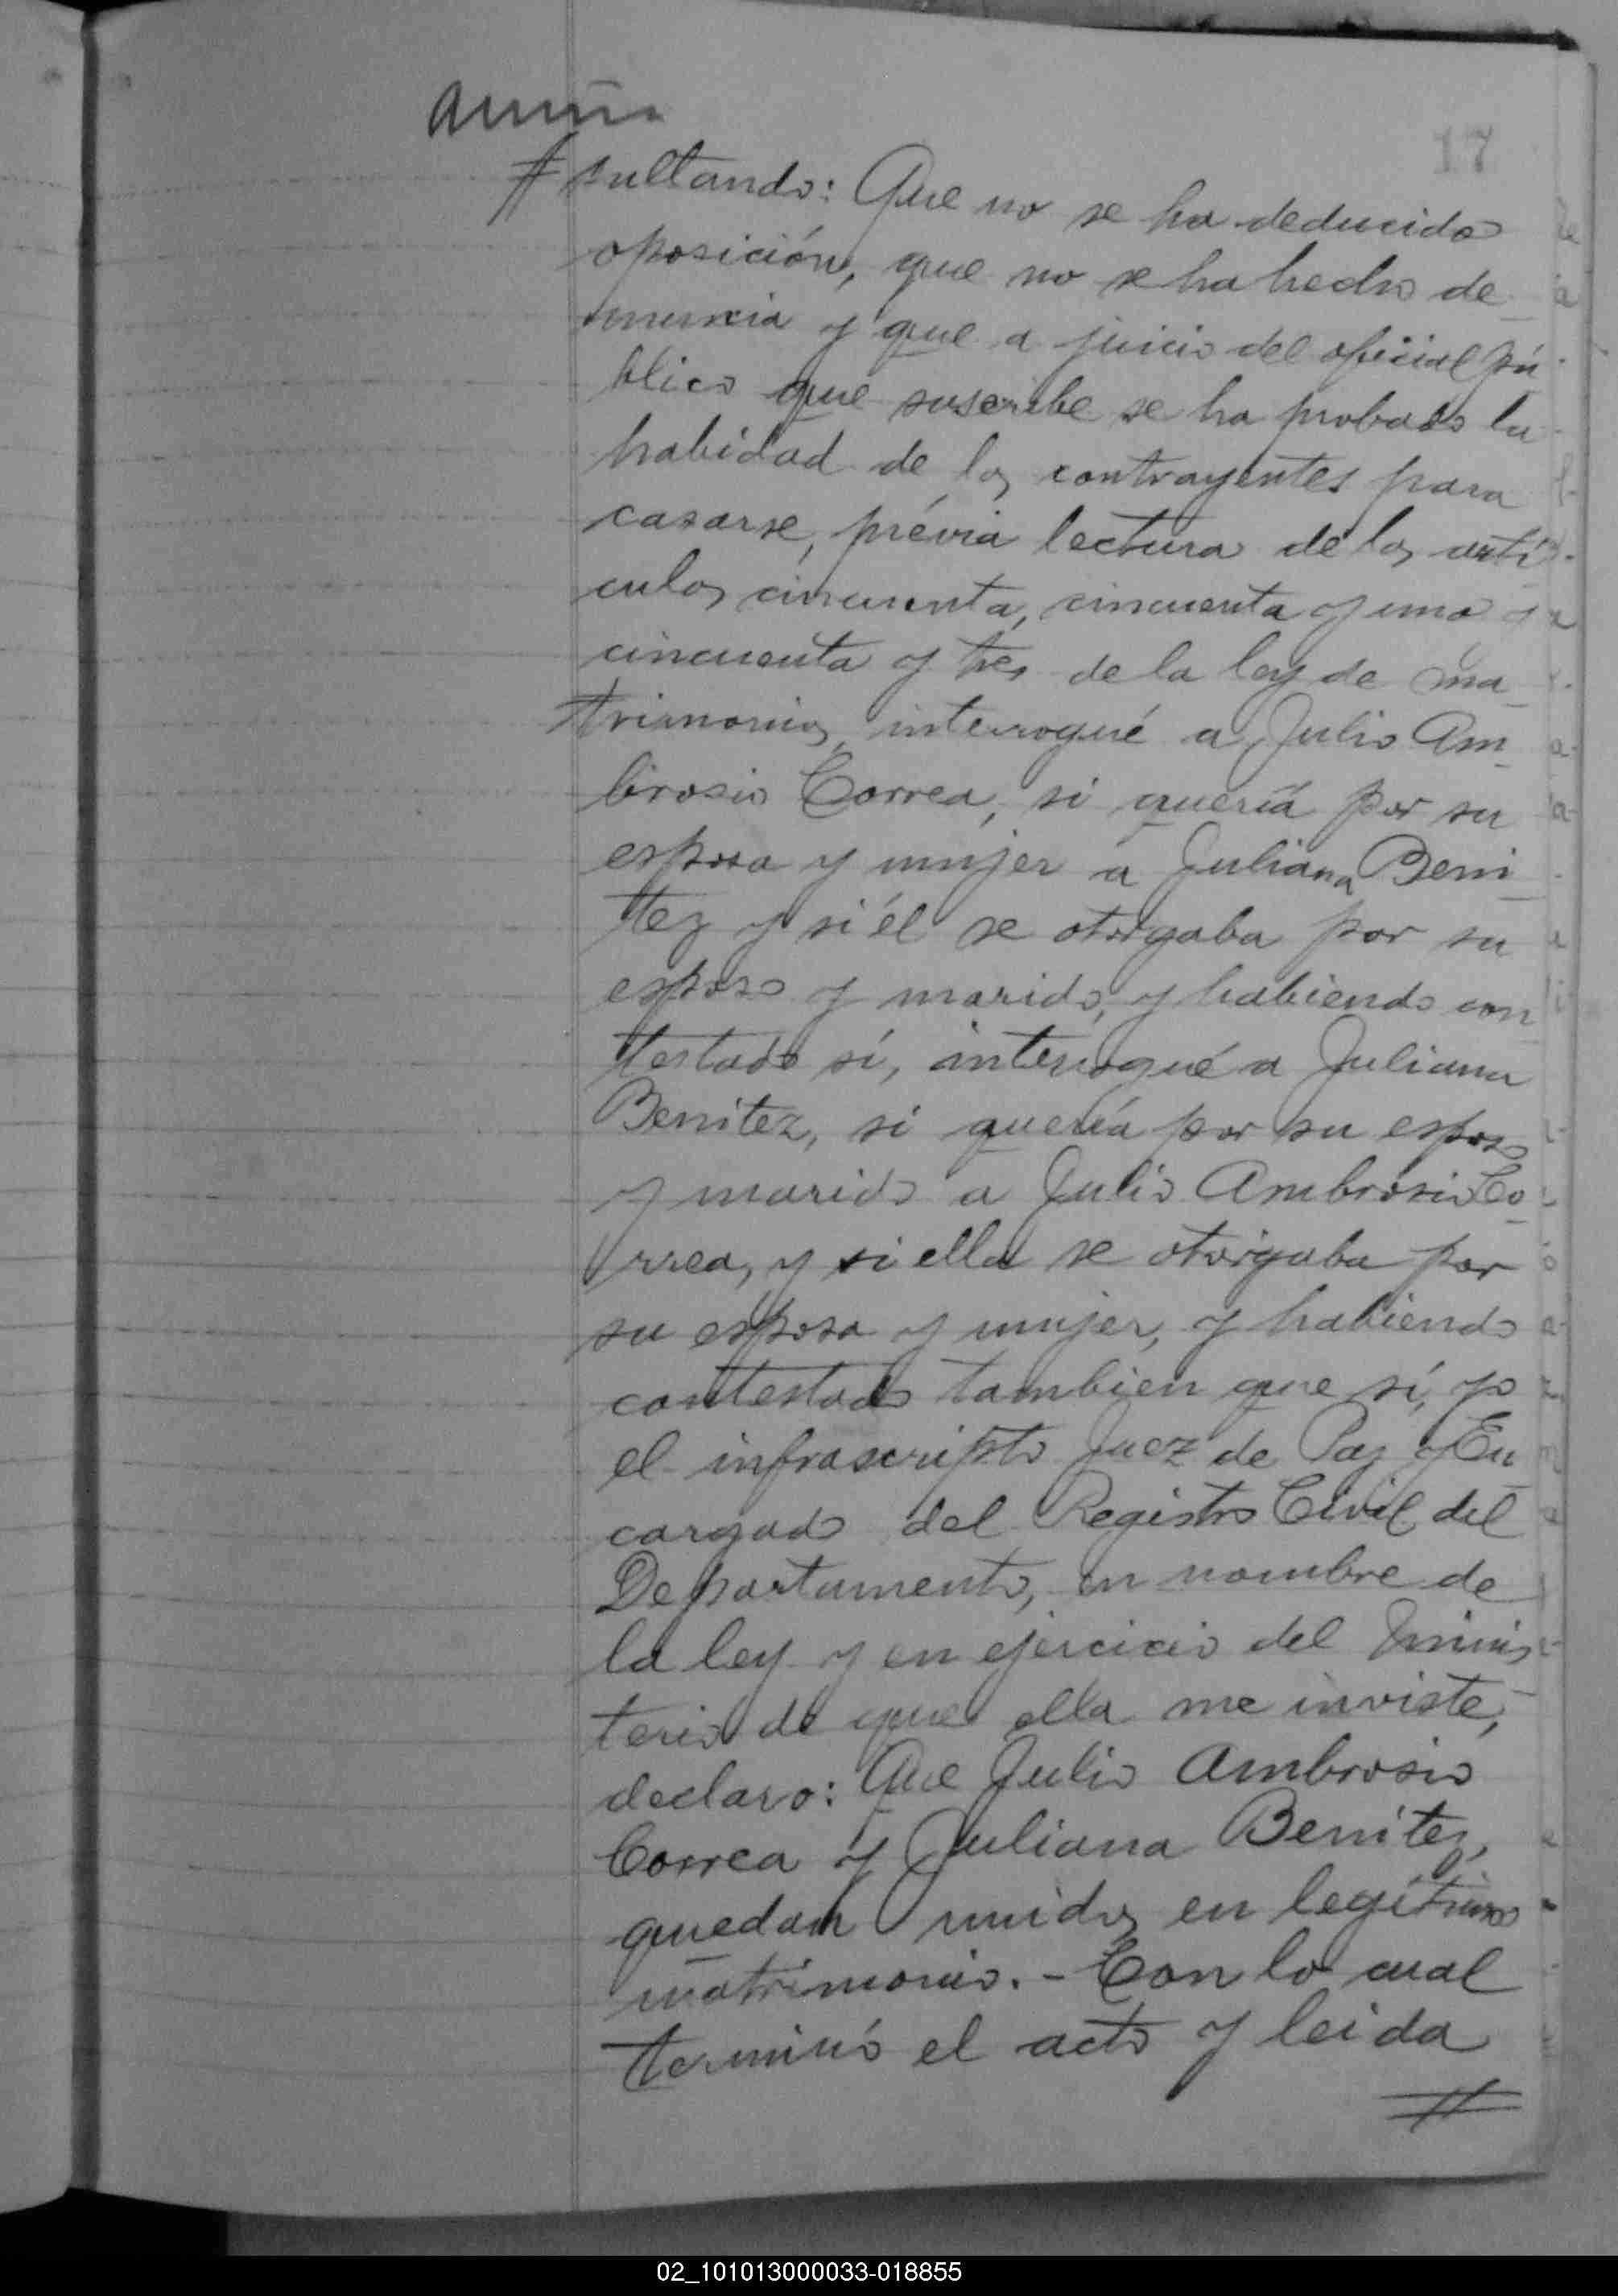 17
sultando: Que no se ha deducido
oposición, que no se ha hecho de_
nuncia y que a juicio del oficial pú
blico que suscribe se ha probado la
habidad de los contrayentes para
casarse, prévia lectura de los artí
culos cincuenta, cincuenta y uno y
cincuenta y tres de la ley de ma_
trimonios, interrogué a Julio Am_
brosio Correa, si quería por su
esposa y mujer a Juliana Beni_
tez y si él se otorgaba por su
esposo y marido, y habiendo con
testado sí, interrogué a Juliana
Benitez, si quería por su esposo
y marido a Julio Ambrosio Co_
rrea, y si ella se otorgaba por
su esposa y mujer, y habiendo
contestado tambien que sí, yo
el infrascripto Juez de Paz y En_
cargado del Registro Civil del
Departamento, en nombre de
la ley y en ejercicio del minis_
terio de que ella me inviste,
declaro: Que Julio Ambrosio
Correa y Juliana Benitez,
quedan unidos en legítimo
matrimonio. - Con lo cual
terminó el acto y leida
02_101013000033-018855